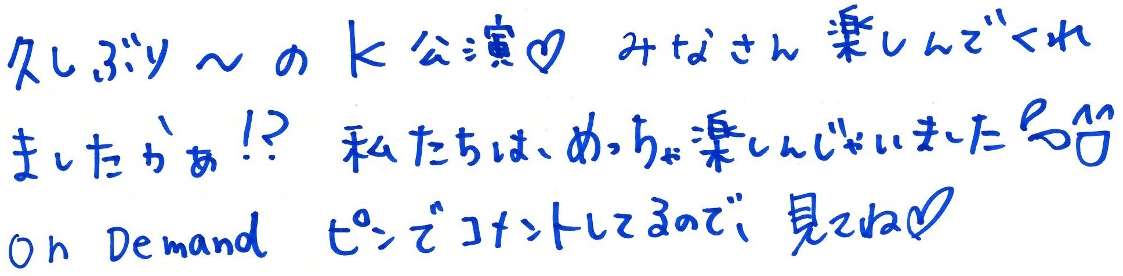 久しぶり〜のK公演♡ みなさん楽しんでくれ
ましたかぁ!? 私たちは、めっちゃ楽しんじゃいました
On Demand ピンでコメントしてるので、見てね♡